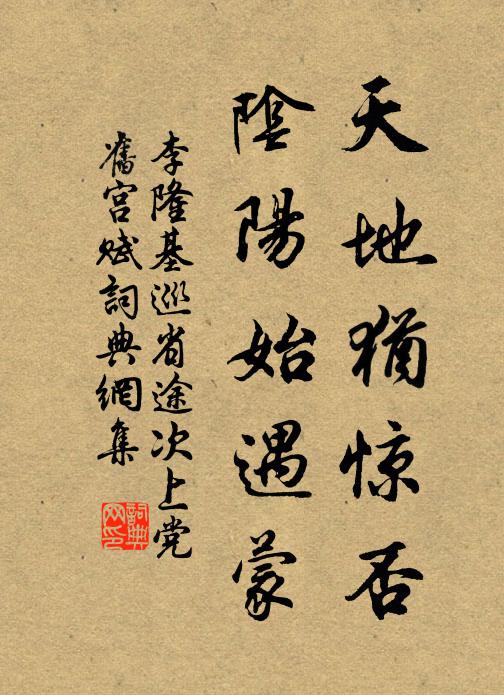 天地猶惊否
陰陽始遇蒙
李隆基巡省途次上党
舊宫赋詞典網集
詞典
网印